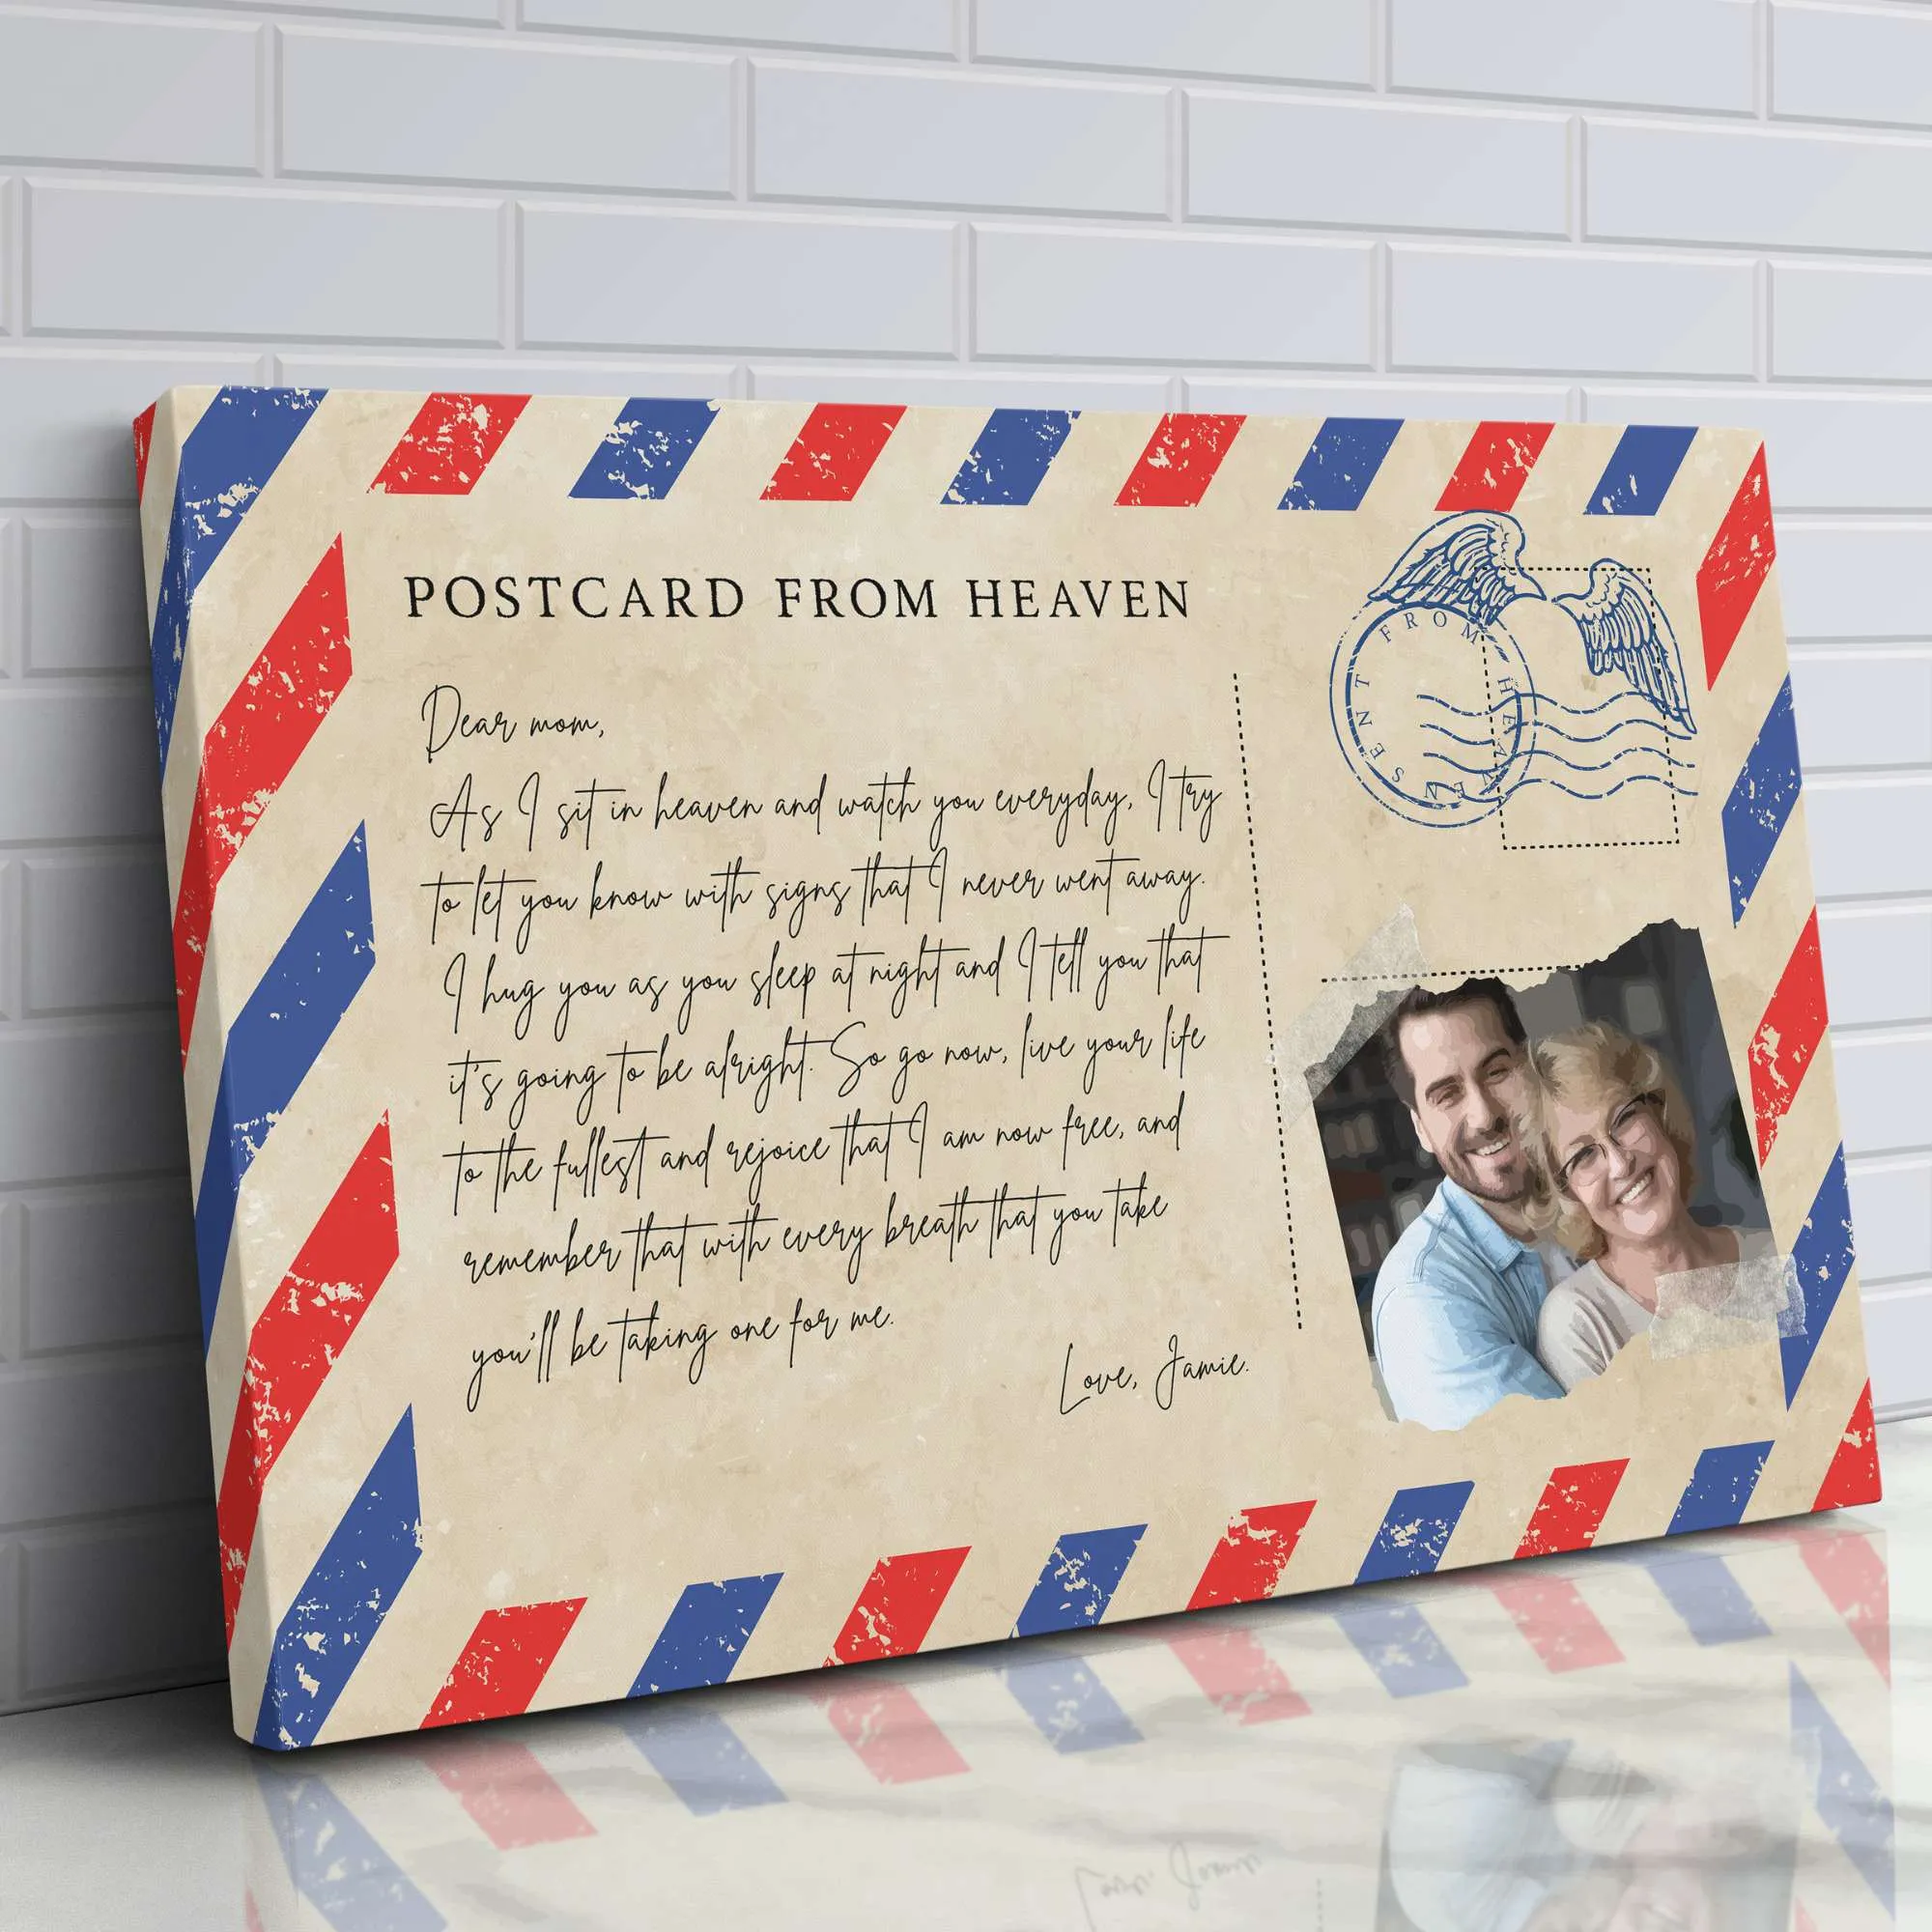 POSTCARD FROM HEAVEN
SENT FROM HEAVEN
Dear mom,
As I sit in heaven and watch you everyday, I try
to let you know with signs that I never went away.
I hug you as you sleep at night and I tell you that
it's going to be alright. So go now, live your life
to the fullest and rejoice that I am now free, and
remember that with every breath that you take
you'll be taking one for me.
Love, Jamie.